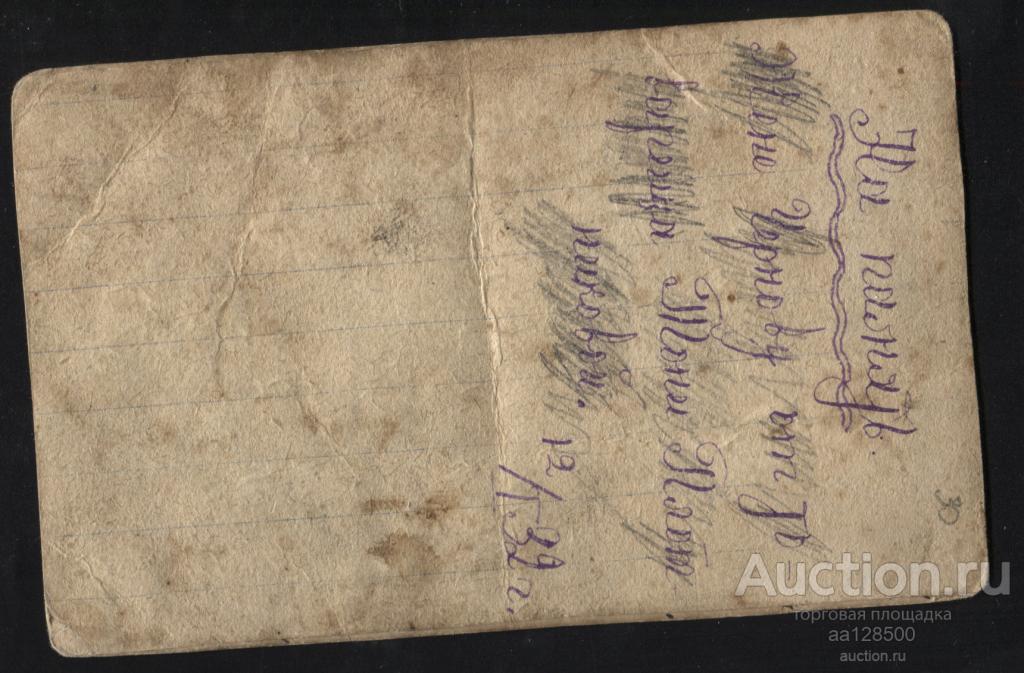 На память.
Жене Чернову от Де
вореца Тони Плот
никовой.
12/I-32 г.
30
Auction.ru
торговая площадка
aa128500
auction.ru